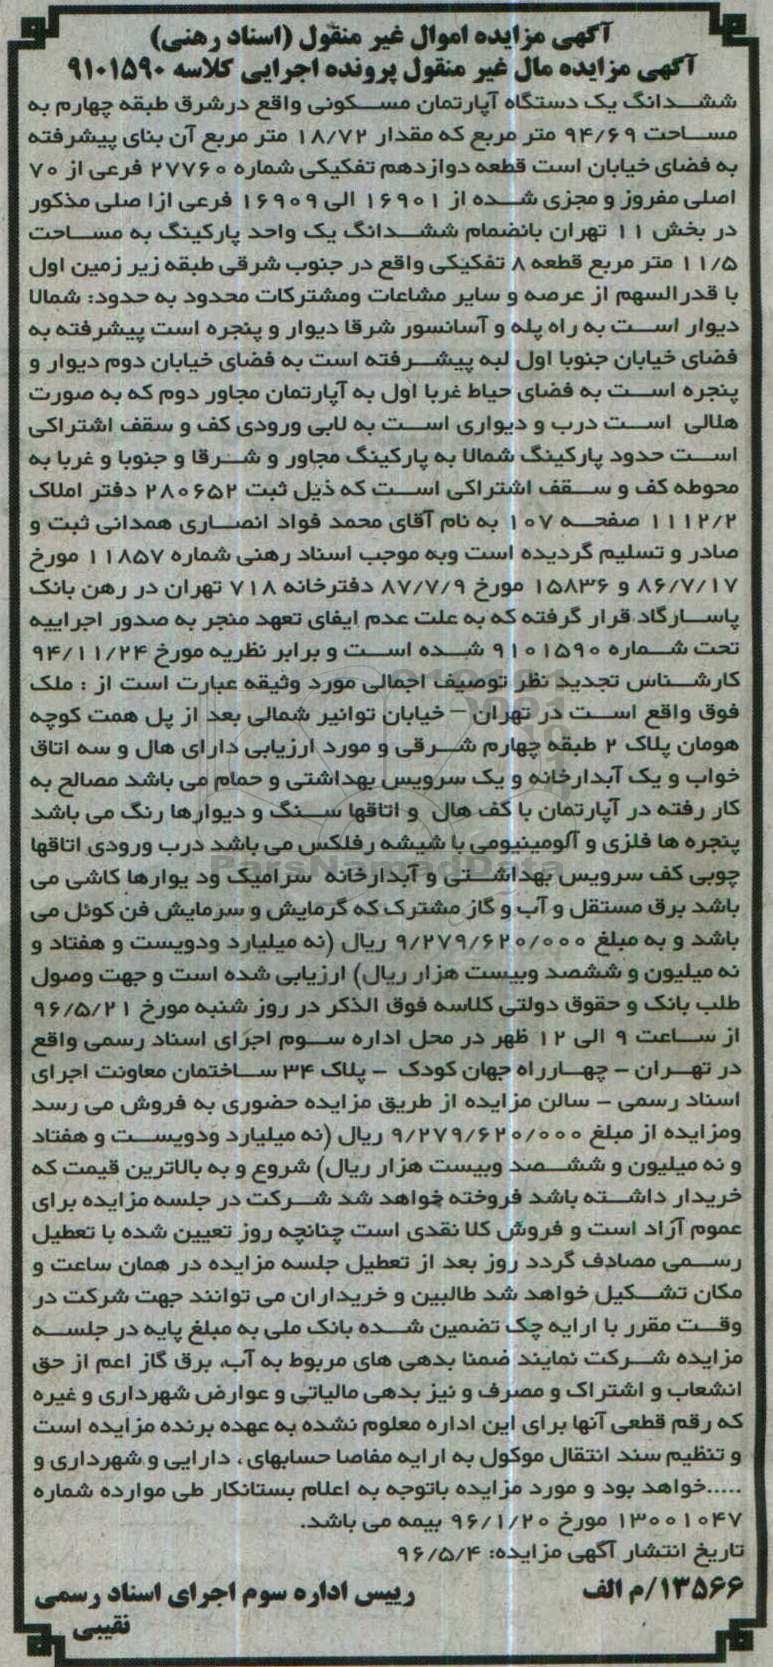 آگهی مزایده اموال غیر منقول (اسناد رهنی)
آگهی مزایده مال غیر منقول پرونده اجرایی کلاسه ۹۱۰۱۵۹۰
ششدانگ یک دستگاه آپارتمان مسکونی واقع درشرق طبقه چهارم به
مساحت ۹۴/۶۹ متر مربع که مقدار ۱۸/۷۲ متر مربع آن بنای پیشرفته
به فضای خیابان است قطعه دوازدهم تفکیکی شماره ۲۷۷۶۰ فرعی از ۷۰
اصلی مفروز و مجزی شده از ۱۶۹۰۱ الی ۱۶۹۰۹ فرعی ازا صلی مذکور
در بخش ۱۱ تهران بانضمام ششدانگ یک واحد پارکینگ به مساحت
۱۱/۵ متر مربع قطعه ۸ تفکیکی واقع در جنوب شرقی طبقه زیر زمین اول
با قدرالسهم از عرصه و سایر مشاعات ومشترکات محدود به حدود: شمالا
دیوار است به راه پله و آسانسور شرقا دیوار و پنجره است پیشرفته به
فضای خیابان جنوبا اول لبه پیشرفته است به فضای خیابان دوم دیوار و
پنجره است به فضای حیاط غربا اول به آپارتمان مجاور دوم که به صورت
هلالی است درب و دیواری است به لابی ورودی کف و سقف اشتراکی
است حدود پارکینگ شمالا به پارکینگ مجاور و شرقا و جنوبا و غربا به
محوطه کف و سقف اشتراکی است که ذیل ثبت ۲۸۰۶۵۲ دفتر املاک
۱۱۱۲/۲ صفحه ۱۰۷ به نام آقای محمد فواد انصاری همدانی ثبت و
صادر و تسلیم گردیده است وبه موجب اسناد رهنی شماره ۱۱۸۵۷ مورخ
۸۶/۷/۱۷ و ۱۵۸۳۶ مورخ ۸۷/۷/۹ دفترخانه ۷۱۸ تهران در رهن بانک
پاسارگاد قرار گرفته که به علت عدم ایفای تعهد منجر به صدور اجراییه
تحت شماره ۹۱۰۱۵۹۰ شده است و برابر نظریه مورخ ۹۴/۱۱/۲۴
کارشناس تجدید نظر توصیف اجمالی مورد وثیقه عبارت است از : ملک
فوق واقع است در تهران – خیابان توانیر شمالی بعد از پل همت کوچه
هومان پلاک ۲ طبقه چهارم شرقی و مورد ارزیابی دارای هال و سه اتاق
خواب و یک آبدارخانه و یک سرویس بهداشتی و حمام می باشد مصالح به
کار رفته در آپارتمان با کف هال و اتاقها سنگ و دیوارها رنگ می باشد
پنجره ها فلزی و آلومینیومی با شیشه رفلکس می باشد درب ورودی اتاقها
چوبی کف سرویس بهداشتی و آبدارخانه سرامیک ود یوارها کاشی می
باشد برق مستقل و آب و گاز مشترک که گرمایش و سرمایش فن کوئل می
باشد و به مبلغ ۹/۲۷۹/۶۲۰/۰۰۰ ریال (نه میلیارد ودویست و هفتاد و
نه میلیون و ششصد وبیست هزار ریال) ارزیابی شده است و جهت وصول
طلب بانک و حقوق دولتی کلاسه فوق الذکر در روز شنبه مورخ ۹۶/۵/۲۱
از ساعت ۹ الی ۱۲ ظهر در محل اداره سوم اجرای اسناد رسمی واقع
در تهران – چهارراه جهان کودک – پلاک ۳۴ ساختمان معاونت اجرای
اسناد رسمی – سالن مزایده از طریق مزایده حضوری به فروش می رسد
ومزایده از مبلغ ۹/۲۷۹/۶۲۰/۰۰۰ ریال (نه میلیارد ودویست و هفتاد
و نه میلیون و ششصد وبیست هزار ریال) شروع و به بالاترین قیمت که
خریدار داشته باشد فروخته خواهد شد شرکت در جلسه مزایده برای
عموم آزاد است و فروش کلا نقدی است چنانچه روز تعیین شده با تعطیل
رسمی مصادف گردد روز بعد از تعطیل جلسه مزایده در همان ساعت و
مکان تشکیل خواهد شد طالبین و خریداران می توانند جهت شرکت در
وقت مقرر با ارایه چک تضمین شده بانک ملی به مبلغ پایه در جلسه
مزایده شرکت نمایند ضمنا بدهی های مربوط به آب، برق گاز اعم از حق
انشعاب و اشتراک و مصرف و نیز بدهی مالیاتی و عوارض شهرداری و غیره
که رقم قطعی آنها برای این اداره معلوم نشده به عهده برنده مزایده است
و تنظیم سند انتقال موکول به ارایه مفاصا حسابهای ، دارایی و شهرداری و
.....خواهد بود و مورد مزایده باتوجه به اعلام بستانکار طی موارده شماره
۱۳۰۰۱۰۴۷ مورخ ۹۶/۱/۲۰ بیمه می باشد.
تاریخ انتشار آگهی مزایده: ۹۶/۵/۴
۱۳۵۶۶/م الف رییس اداره سوم اجرای اسناد رسمی
نقیبی
ParsNamadData